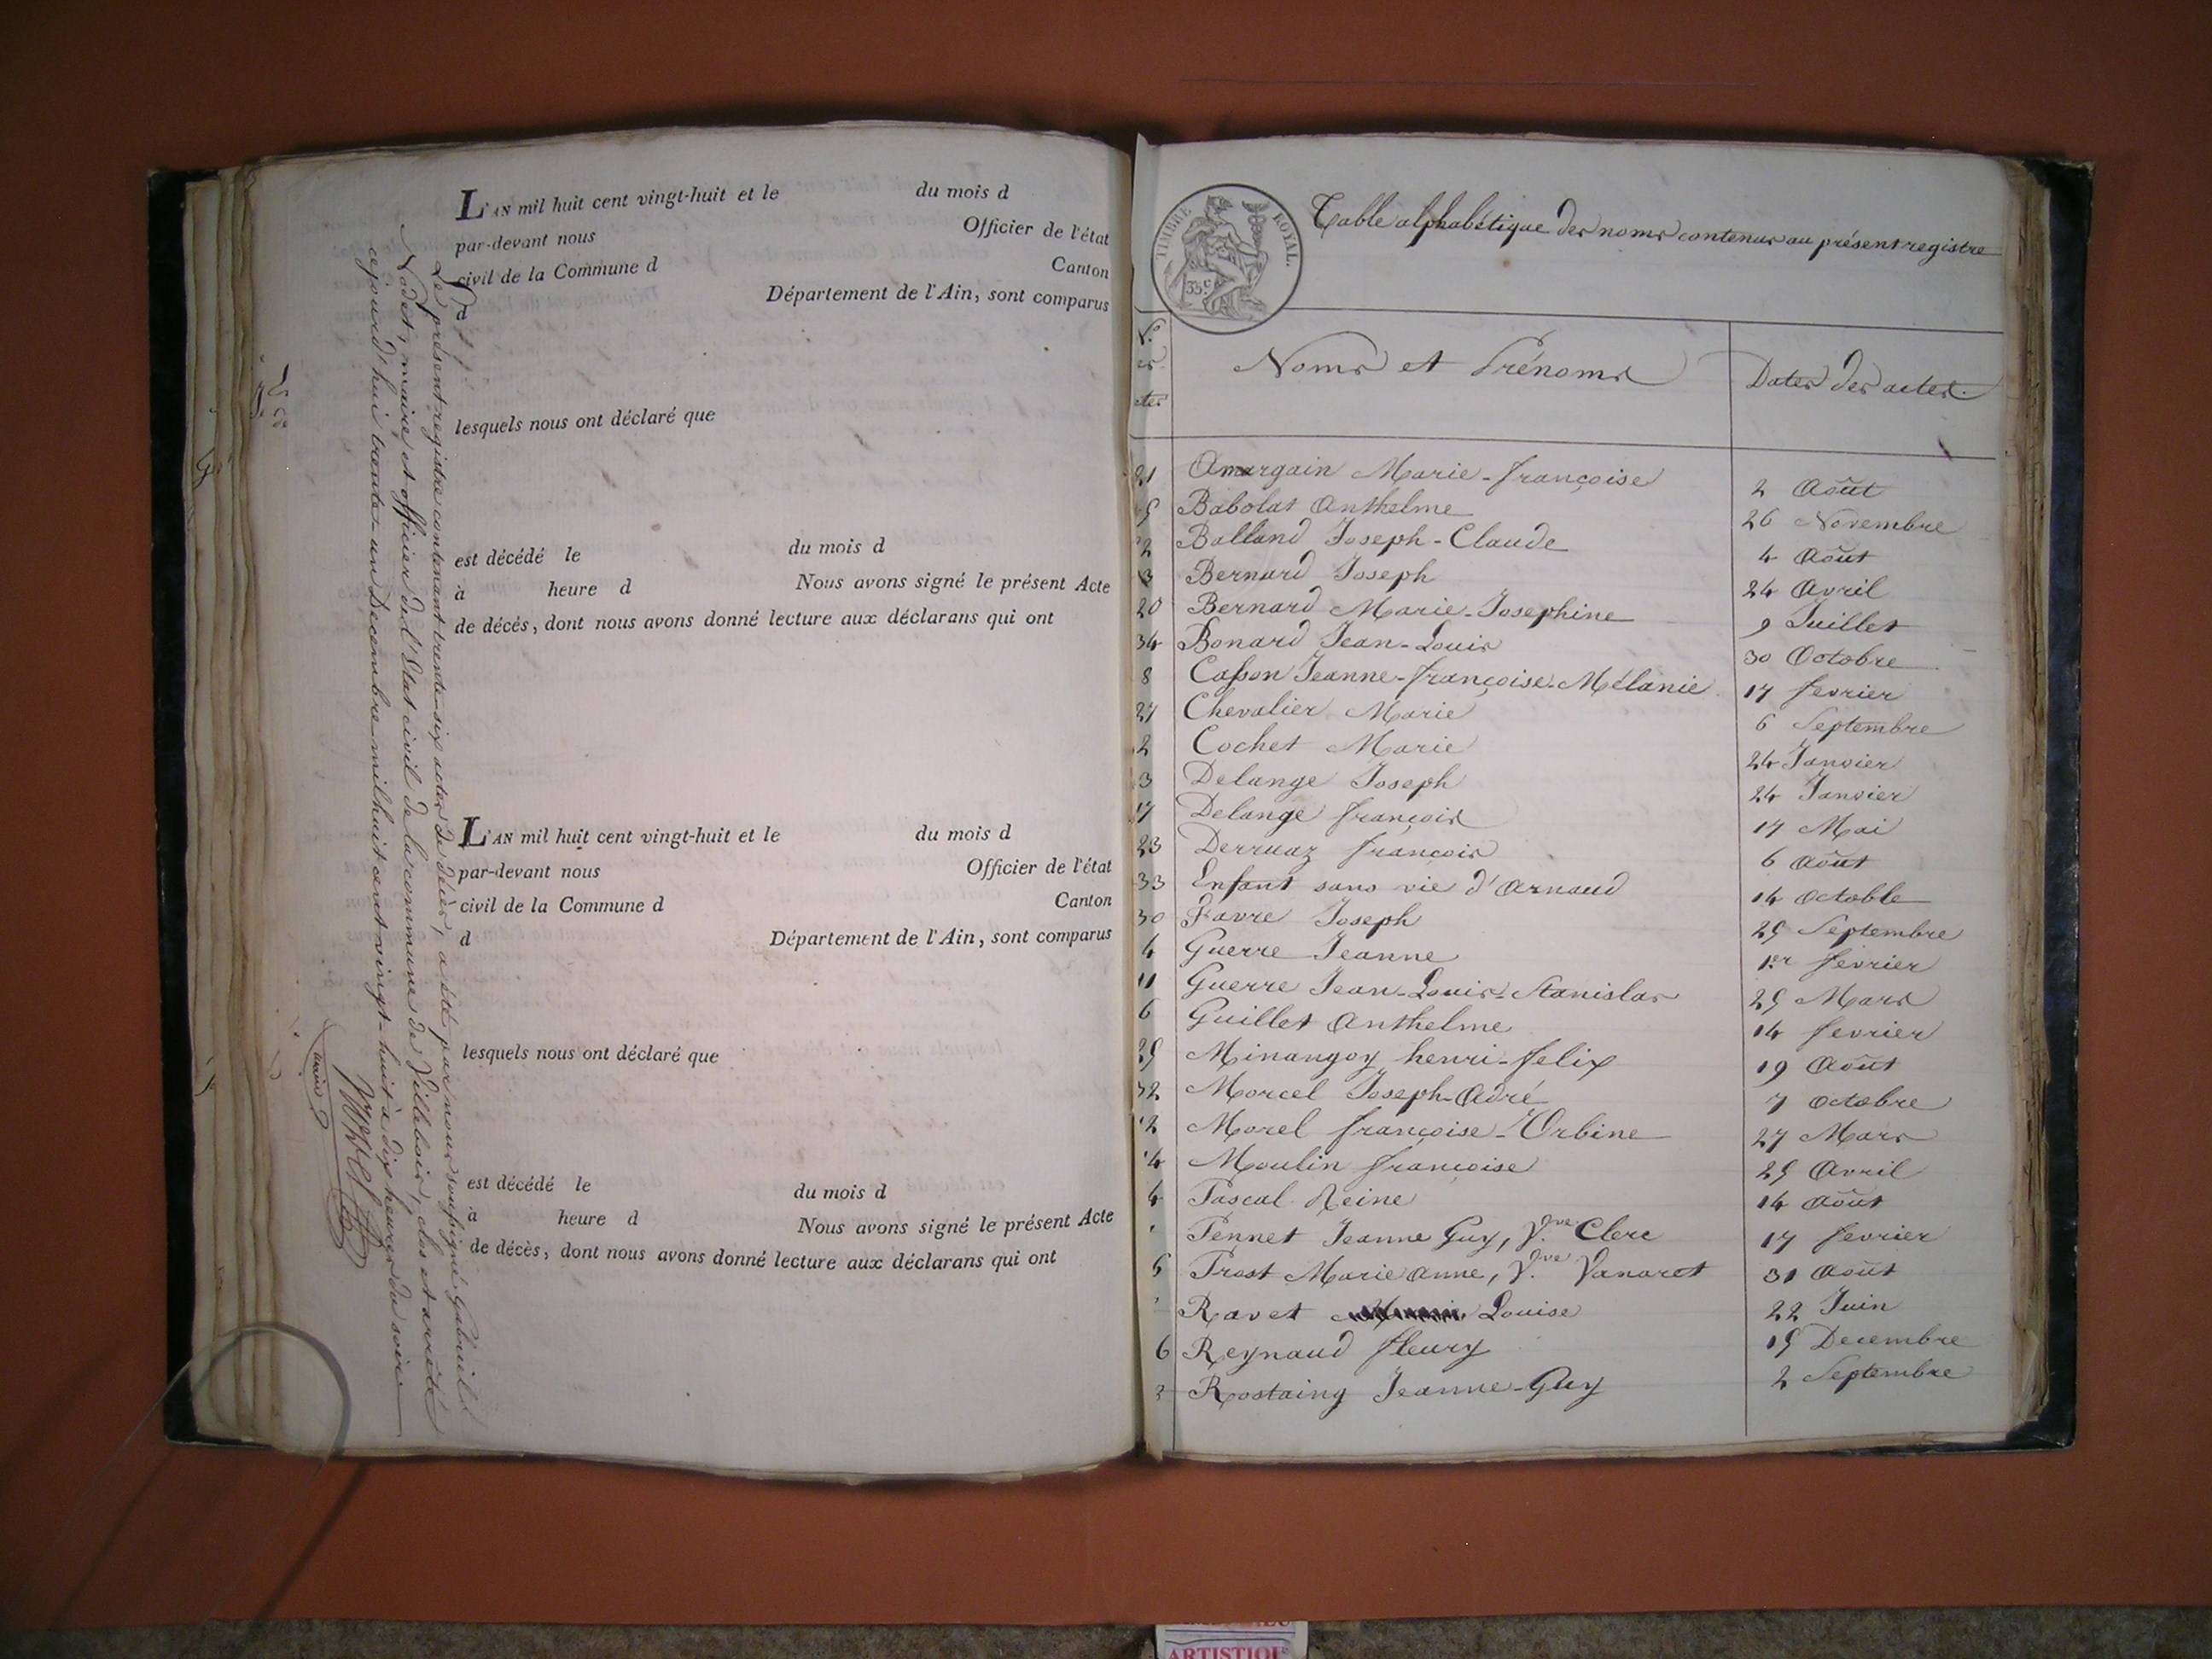 L'AN mil huit cent vingt-huit et le du mois d
par-devant nous Officier de l'état
civil de la Commune d Canton
d Département de l'Ain, sont comparus
lesquels nous ont déclaré que
est décédé le du mois d
à heure d Nous avons signé le présent Acte
de décés, dont nous avons donné lecture aux déclarans qui ont
L'AN mil huit cent vingt-huit et le du mois d
par-devant nous Officier de l'état
civil de la Commune d Canton
d Département de l'Ain, sont comparus
lesquels nous ont déclaré que
est décédé le du mois d
à heure d Nous avons signé le présent Acte
de décès, dont nous avons donné lecture aux déclarans qui ont
Le présent registre contenant trente-six actes de décès, a été par nous soussigné Gabriel
Nodet, maire et officier de l'Etat civil de la commune de Villebois, clos et arrêté
cejourd'hui trente-un Decembre mil huit cent vingt-huit à dix heures du soir
TIMBRE ROYAL.
35c
Table alphabétique des noms contenus au présent registre
Noms et Prénoms Dates des actes.
21 Amargain Marie-françoise 2 Août
Babolat Anthelme 26 Novembre
Balland Joseph-Claude 4 Août
3 Bernard Joseph 24 Avril
20 Bernard Marie-Josephine 9 Juillet
34 Bonard Jean-Louis 30 Octobre
8 Casson Jeanne-françoise-Mélanie 17 fevrier
27 Chevalier Marie 6 Septembre
2 Cochet Marie 24 Janvier
3 Delange Joseph 24 Janvier
17 Delange françois 17 Mai
23 Derruaz françois 6 Août
33 Enfant sans vie d'Arnaud 14 Octobre
30 Favre Joseph 25 Septembre
4 Guerre Jeanne 1er fevrier
11 Guerre Jean-Louis-Stanislas 25 Mars
6 Guillet Anthelme 14 fevrier
25 Minangoy henri-felix 19 Août
32 Morcel Joseph-Adré 7 Octobre
12 Morel françoise-Orbine 27 Mars
14 Moulin françoise 25 Avril
4 Pascal Reine 14 Août
Pennet Jeanne Guy, Vve Clerc 17 fevrier
Prost Marie Anne, Vve Vanaret 31 Août
Ravet Louise 22 Juin
6 Reynaud fleury 15 Decembre
Rostaing Jeanne-Guy 2 Septembre